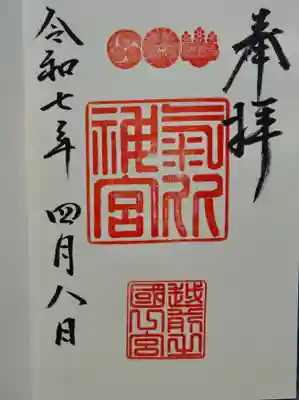 奉拝
氣比
神宮
越前之
國宮
令和七年 四月八日